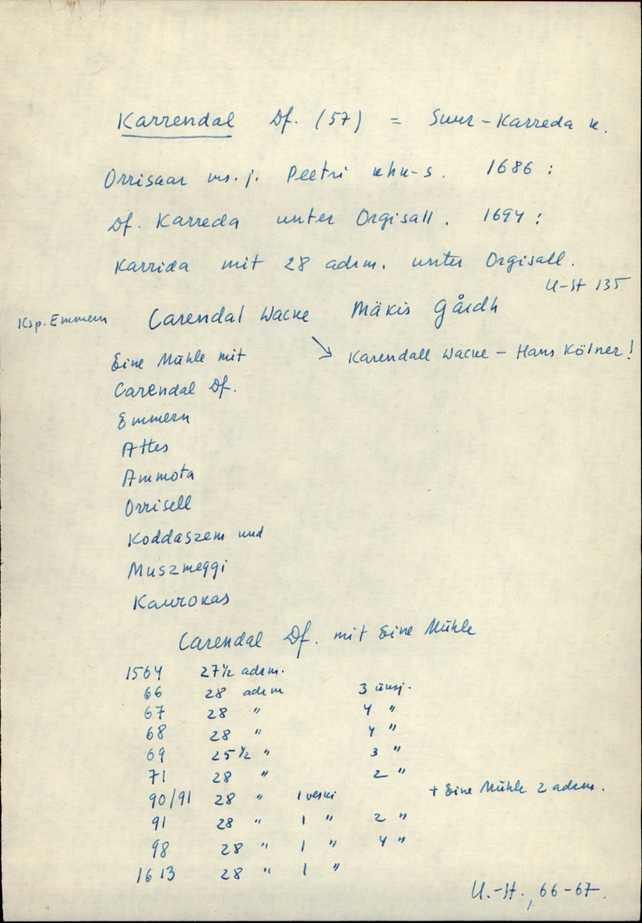 Karrendal Df. (57) = Suur-Karreda k.
Orrisaar vs. j. Peetri khk-s. 1686:
Df. Karreda unter Orgisall. 1694:
Karrida mit 28 adrm. unter Orgisall.
U-St 135
Ksp. Emmern Carendal Wacke Mäkis Gårdh
Eine Mühle mit → Karendall Wacke - Hans Kölner!
Carendal Df.
Emmern
Attes
Ammota
Orrisell
Koddaszem und
Muszmeggi
Kaurokas
Carendal Df. mit Eine Mühle
1564 27½ adrm.
66 28 adrm 3 üksj.
67 28 " 4 "
68 28 " 4 "
69 25½ " 3 "
71 28 " 2 "
90/91 28 " 1 veski + Eine Mühle 2 adrm.
91 28 " 1 " 2 "
98 28 " 1 " 4 "
1613 28 " 1 "
U.-St., 66-67.